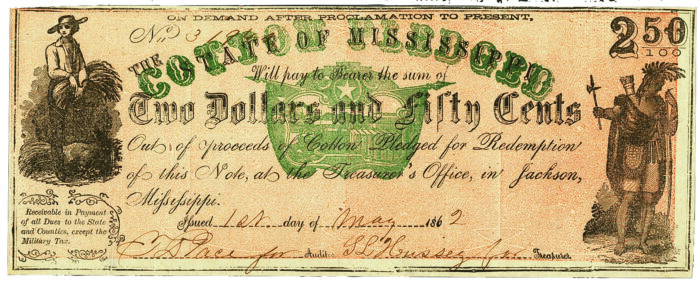 ON DEMAND AFTER PROCLAMATION TO PRESENT,
No
COTTON PLEDGED
THE STATE OF MISSISSIPPI
2 50/100
Will pay to Bearer the sum of
Two Dollars and Fifty Cents
Out of proceeds of Cotton Pledged for Redemption
of this Note, at the Treasurer's Office, in Jackson,
Mississippi.
Issued 1st day of May 1862
Receivable in Payment
of all Dues to the State
and Counties, except the
Military Tax.
for Audit. Hussey for Treasurer